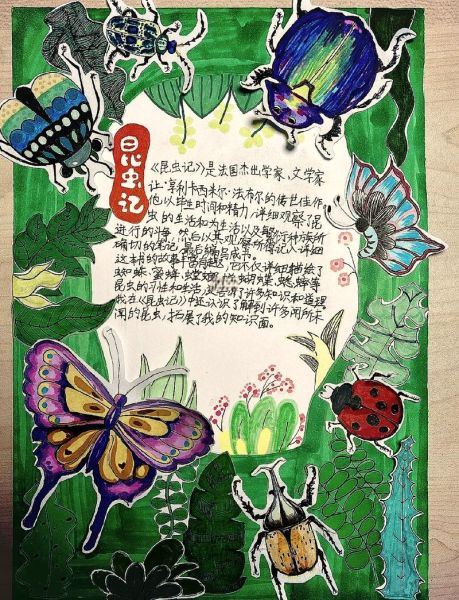 昆虫记
《昆虫记》是法国杰出学家、文学家
让·亨利卡西米尔·法布尔的传世佳作,
他以毕生时间和精力,详细观察了昆
虫的生活和为生活以及繁衍种族所
进行的斗争,然后以其观察所得记入详细
确切的笔记,最后编写成书。
这本的故事
,它不仅详细描绘了
如蝉、蜜蜂、螳螂、
等
昆虫的习性和生活,
了许多知识和道理。
我在《昆虫记》中还认识了解到许多闻所未
闻的昆虫,拓展了我的知识面。